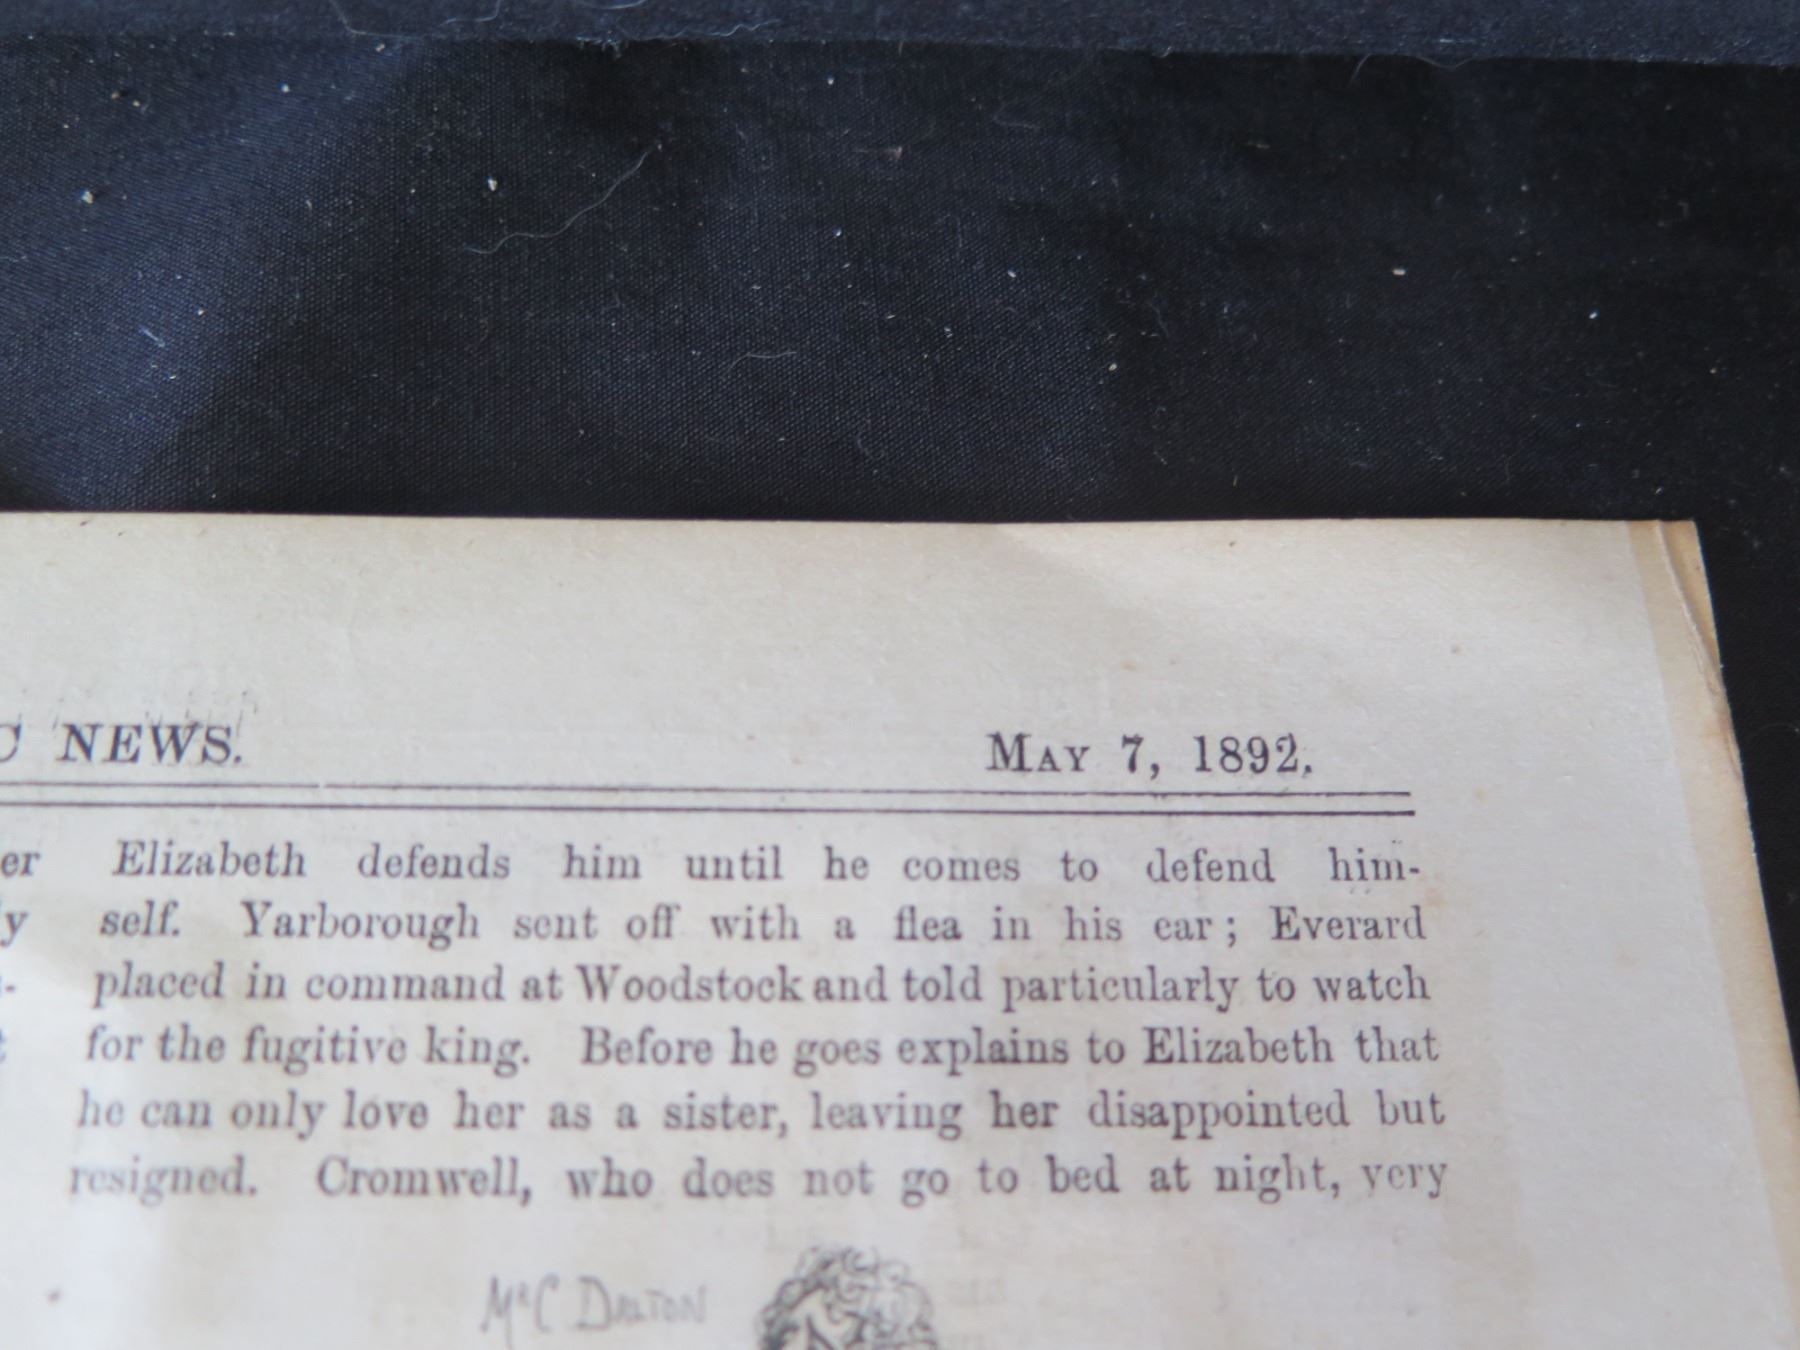 C NEWS. MAY 7, 1892.
er
y
-
t
Elizabeth defends him until he comes to defend him-
self. Yarborough sent off with a flea in his ear; Everard
placed in command at Woodstock and told particularly to watch
for the fugitive king. Before he goes explains to Elizabeth that
he can only love her as a sister, leaving her disappointed but
resigned. Cromwell, who does not go to bed at night, very
MR C DALTON